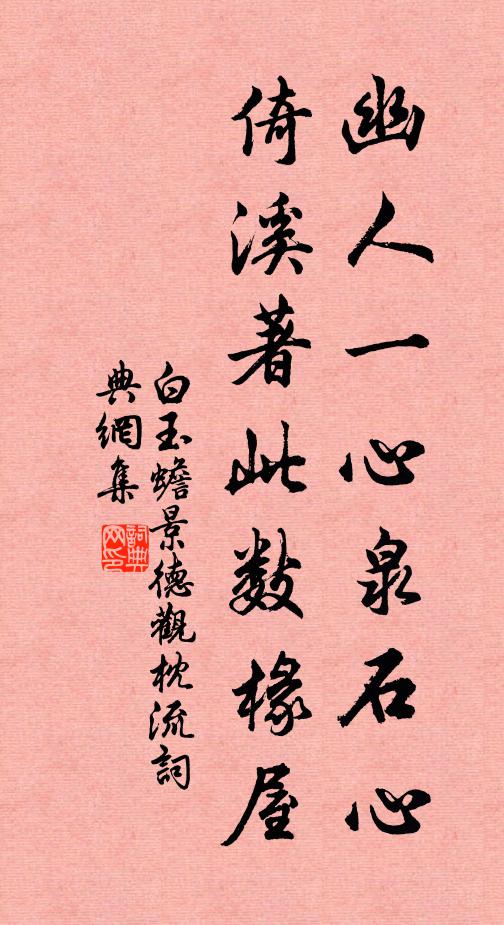 幽人一心泉石心
倚溪著此數椽屋
白玉蟾景德觀枕流詞
典網集
詞典網印